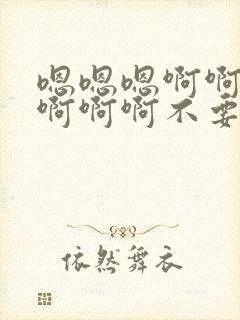 嗯嗯嗯啊啊
啊啊啊不要
依然舞衣